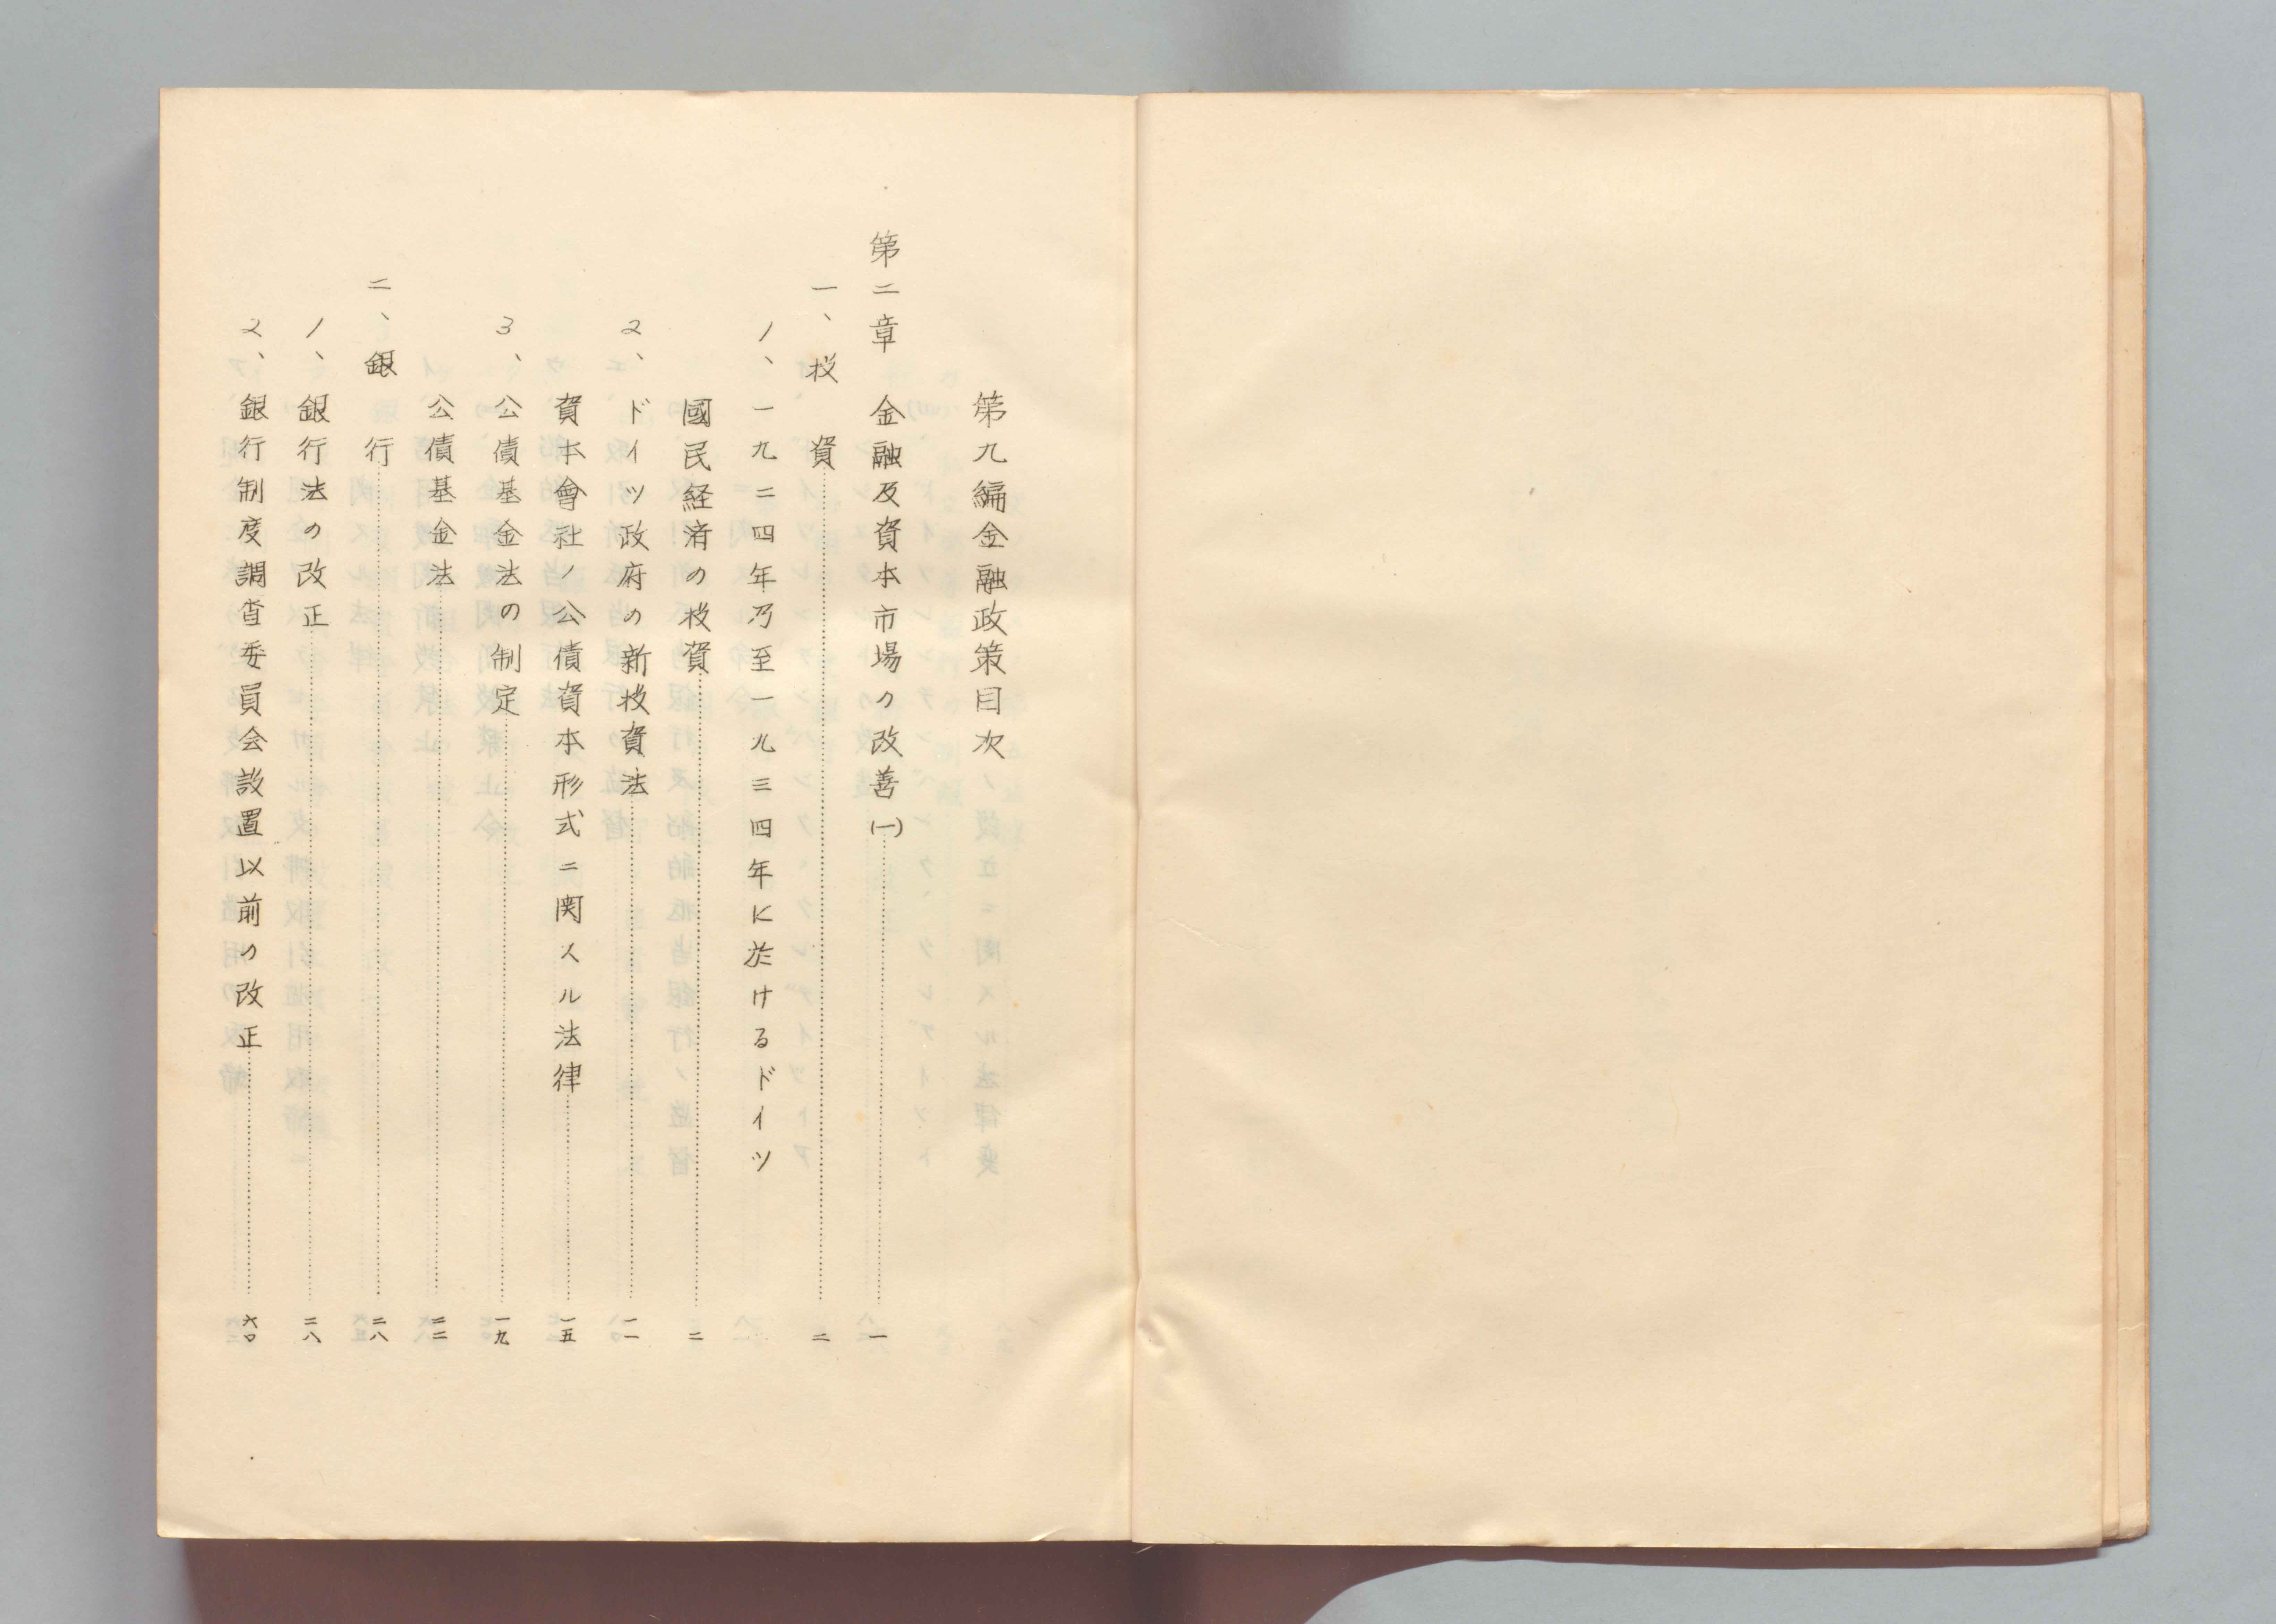 第九編金融政策目次
第二章 金融及資本市場の改善(一)……一
一、投 資……二
1、一九二四年乃至一九三四年に於けるドイツ
國民経済の投資……二
2、ドイツ政府の新投資法……一一
資本會社ノ公債資本形式ニ関スル法律……一五
3、公債基金法の制定……一九
公債基金法……二二
二、銀 行……二八
1、銀行法の改正……二八
2、銀行制度調査委員会設置以前の改正……六〇